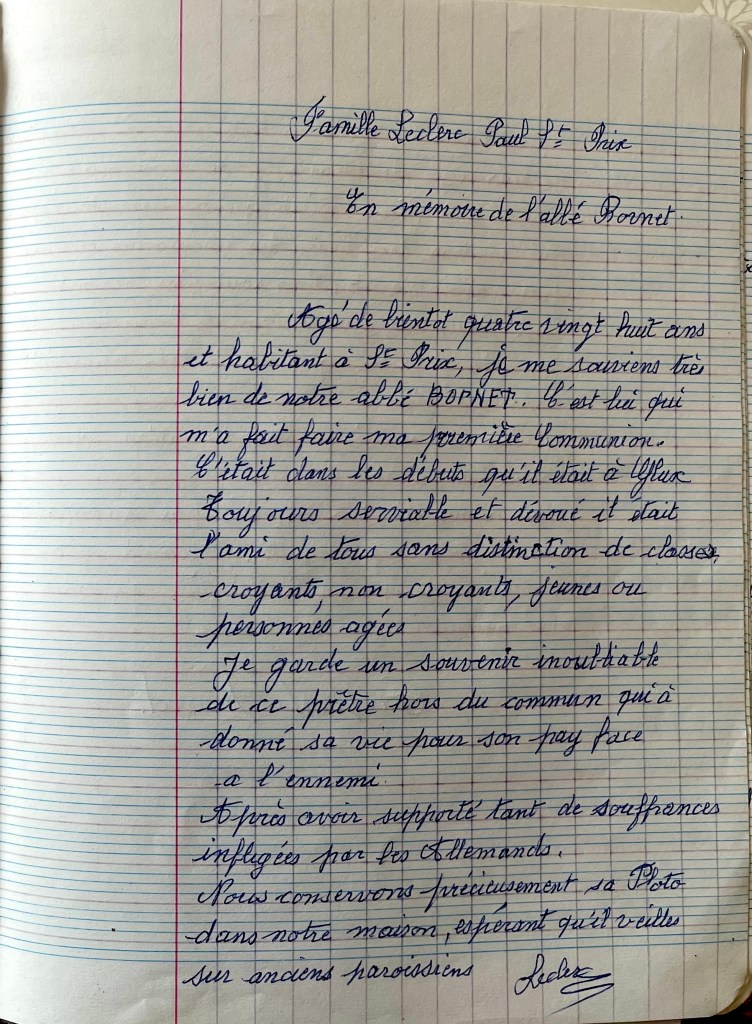 Famille Leclerc Paul St Prix
En mémoire de l'abbé Bornet.
Agé de bientot quatre vingt huit ans
et habitant à St Prix, je me souviens très
bien de notre abbé BORNET. C'est lui qui
m'a fait faire ma première Communion.
C'était dans les débuts qu'il était à Glux
Toujours serviable et dévoué il était
l'ami de tous sans distinction de classes,
croyants, non croyants, jeunes ou
personnes agées
Je garde un souvenir inoubliable
de ce prêtre hors du commun qui à
donné sa vie pour son pay face
a l'ennemi.
Après avoir supporté tant de souffrances
infligées par les Allemands.
Nous conservons précieusement sa Photo
dans notre maison, espérant qu'il veilles
sur anciens paroissiens Leclerc